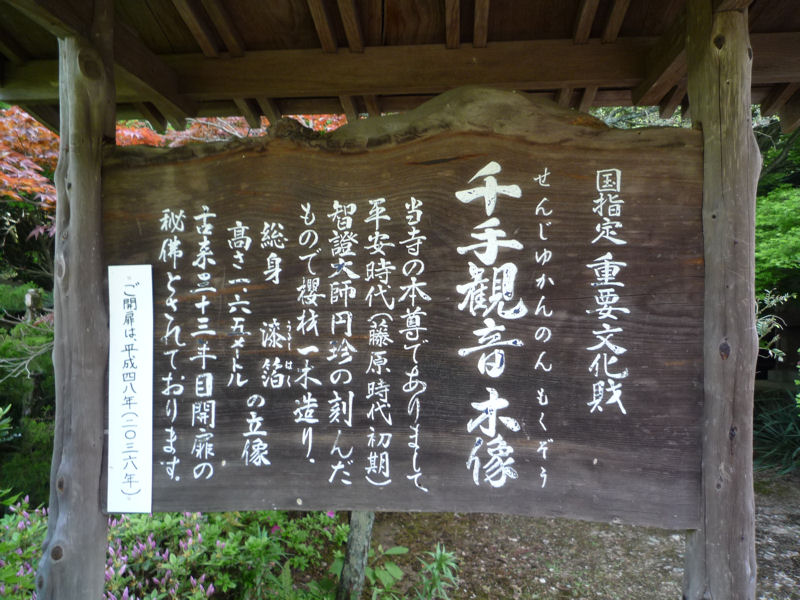 国指定 重要文化財
せんじゆかんのん もくぞう
千手観音 木像
当寺の本尊でありまして
平安時代(藤原時代初期)
智證大師円珍の刻んだ
もので櫻材一木造り.
総身 漆箔 の立像
うるし はく
高さ一.六五メートル
古来三十三年目開扉の
秘佛とされております.
ご開扉は、平成四八年(二〇三六年)